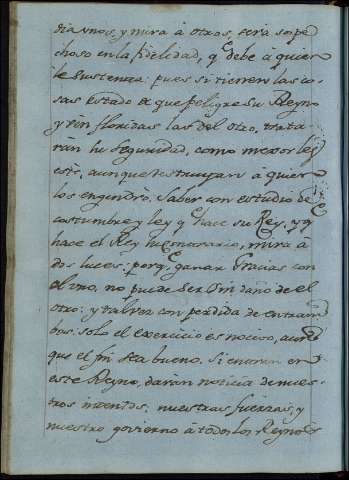 dia unos, y mira à otros, será sospe
choso en la fidelidad, q.e debe à quien
le sustenta: pues si tienen las co-
sas estado de que peligre su Reyno
y sin floridas las del otro, trata
rán su seguridad, como mexor les
esté, aunque destruyan à quien
los engendrò. Saber con estudio de
costumbre, y ley q.e hace su Rey, y q.e
hace el Rey su contrario, mira à
dos luces: porq.e ganar Gracias con
el uno, no puede ser sin daño de el
otro: y talvez con perdida de entram
bos. solo el exercicio es nocivo, aun
que el fin sea bueno. Si entran en
este Reyno, darán noticia de nues-
tros intentos, nuestras fuerzas, y
nuestro govierno à todos los Reynos